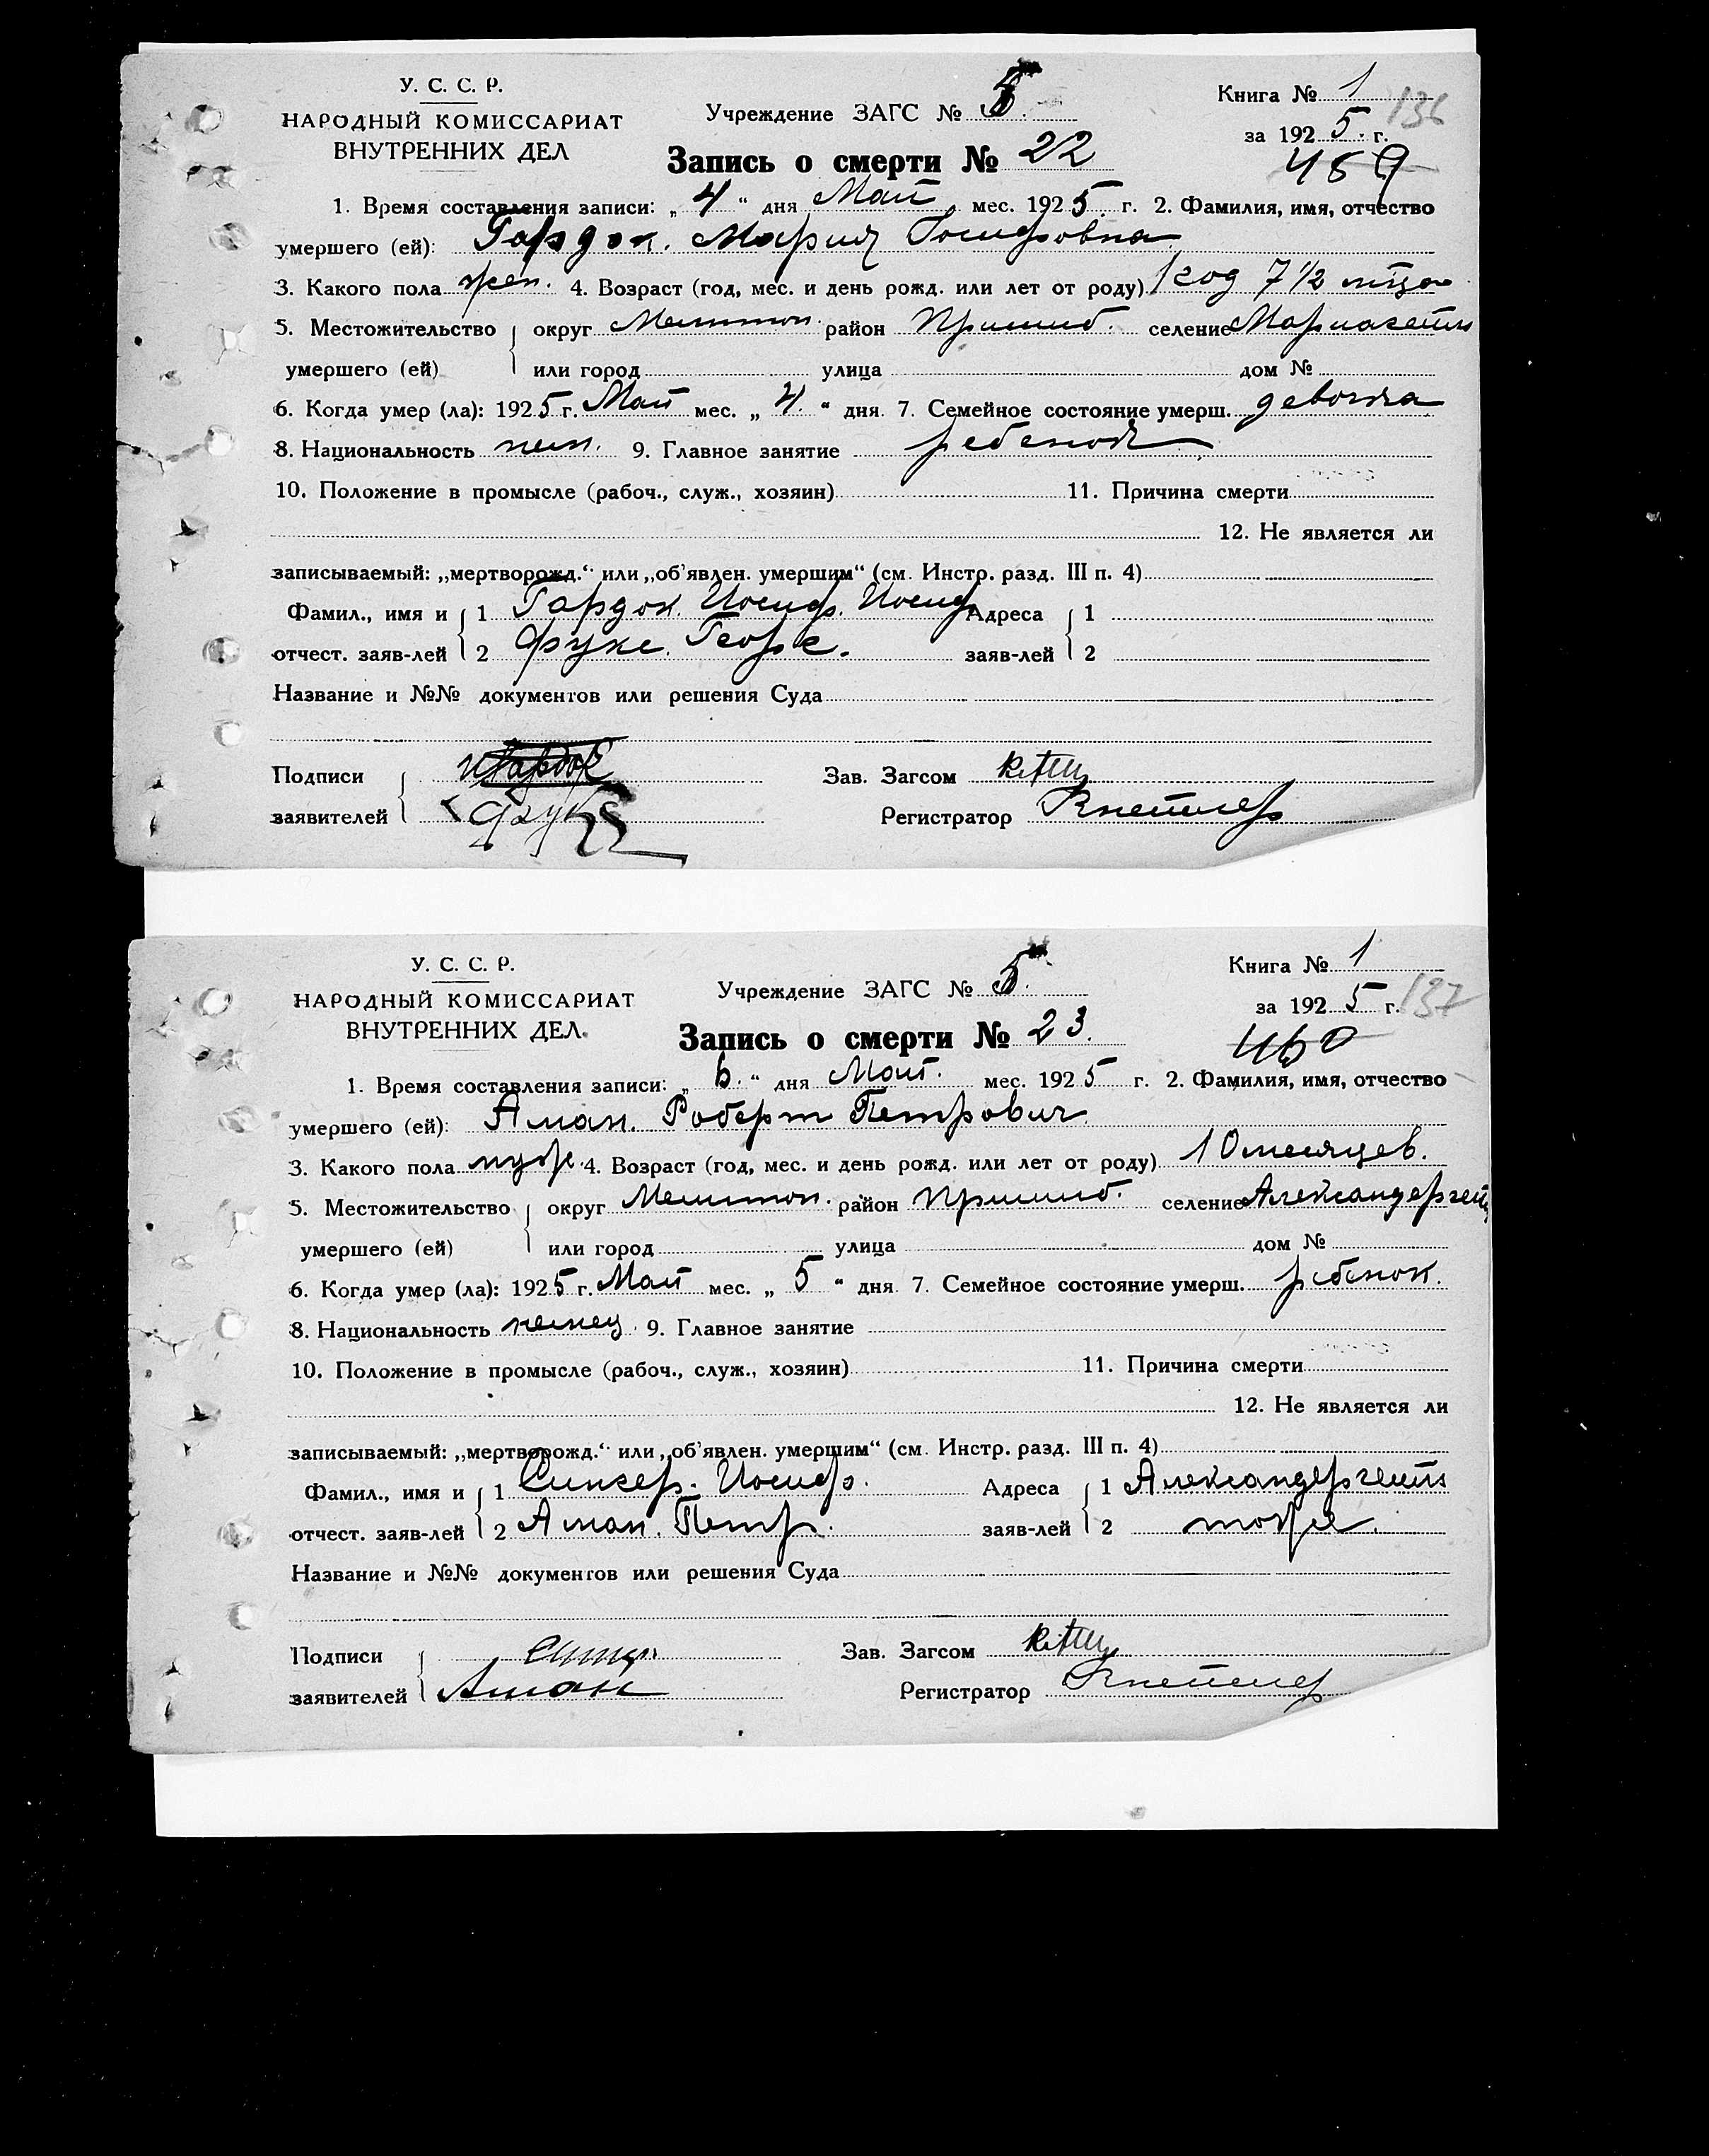 У. С. С. Р.
НАРОДНЫЙ КОМИССАРИАТ
ВНУТРЕННИХ ДЕЛ
Учреждение ЗАГС № 5.
Книга № 1
136
за 1925. г.
Запись о смерти № 22
459
1. Время составления записи: „4“ дня Май мес. 1925. г. 2. Фамилия, имя, отчество
умершего (ей): Гардок. Мария Иосифовна
3. Какого пола жен. 4. Возраст (год, мес. и день рожд. или лет от роду) 1 год 7 1/2 м-ца
5. Местожительство округ Мелитоп. район Пришиб. селение Мариагейм
умершего (ей) или город улица дом №
6. Когда умер (ла): 1925 г. Май мес. „4.“ дня. 7. Семейное состояние умерш. девочка
8. Национальность нем. 9. Главное занятие ребенок
10. Положение в промысле (рабоч., служ., хозяин) 11. Причина смерти
12. Не является ли
записываемый: „мертворожд.“ или „об'явлен. умершим“ (см. Инстр. разд. III п. 4)
Фамил., имя и 1 Гардок. Иосиф. Иосиф Адреса 1
отчест. заяв-лей 2 Фукс. Георг. заяв-лей 2
Название и №№ документов или решения Суда
Подписи Зав. Загсом
заявителей Фукс Регистратор
У. С. С. Р.
НАРОДНЫЙ КОМИССАРИАТ
ВНУТРЕННИХ ДЕЛ.
Учреждение ЗАГС № 5.
Книга № 1
за 1925 г. 137
Запись о смерти № 23.
460
1. Время составления записи: „6.“ дня Май. мес. 1925 г. 2. Фамилия, имя, отчество
умершего (ей): Аман. Роберт Петрович
3. Какого пола муж. 4. Возраст (год, мес. и день рожд. или лет от роду) 10 месяцев.
5. Местожительство округ Мелитоп. район Пришиб. селение Александергейм
умершего (ей) или город улица дом №
6. Когда умер (ла): 1925 г. Май мес. „5“ дня. 7. Семейное состояние умерш. ребенок.
8. Национальность немец. 9. Главное занятие
10. Положение в промысле (рабоч., служ., хозяин) 11. Причина смерти
12. Не является ли
записываемый: „мертворожд.“ или „об'явлен. умершим“ (см. Инстр. разд. III п. 4)
Фамил., имя и 1 Сингер. Иосиф. Адреса 1 Александергейм
отчест. заяв-лей 2 Аман. Петр. заяв-лей 2 тоже.
Название и №№ документов или решения Суда
Подписи Зав. Загсом
заявителей Аман Регистратор